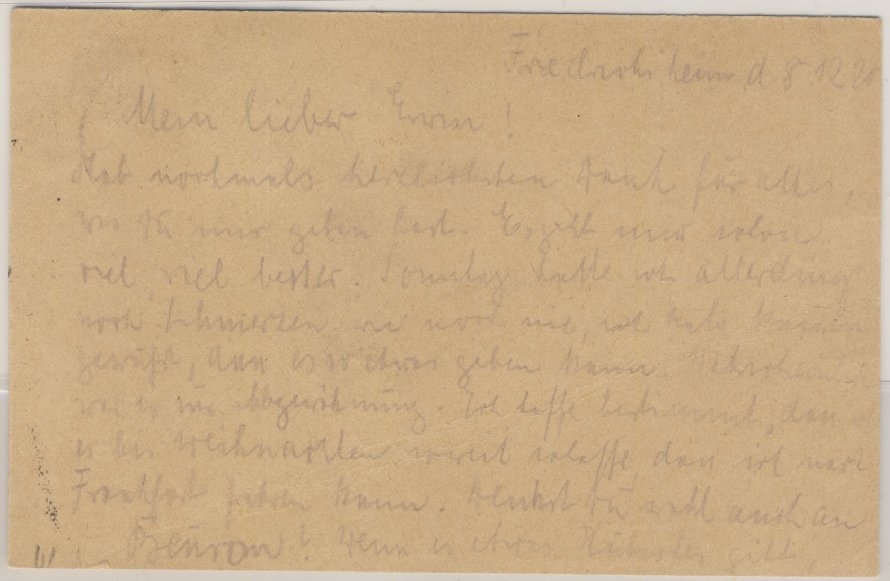 Friedrichsheim d 8 12 20
Mein lieber Erwin!
Hab nochmals herzlichsten Dank für alles,
was Du mir geben hast. Es geht mir schon
viel, viel besser. Sonntag hatte ich allerdings
noch Schmerzen wie noch nie, ich habe kaum
gewußt, dass es so etwas geben kann. Wahrscheinlich
war es die Abgewöhnung. Ich hoffe bestimmt, dass ich
es bis Weihnachten soweit schaffe, dass ich nach
Frankfurt fahren kann. Denkst Du wohl auch an
Beuron? Wenn es etwas Hübsches gibt